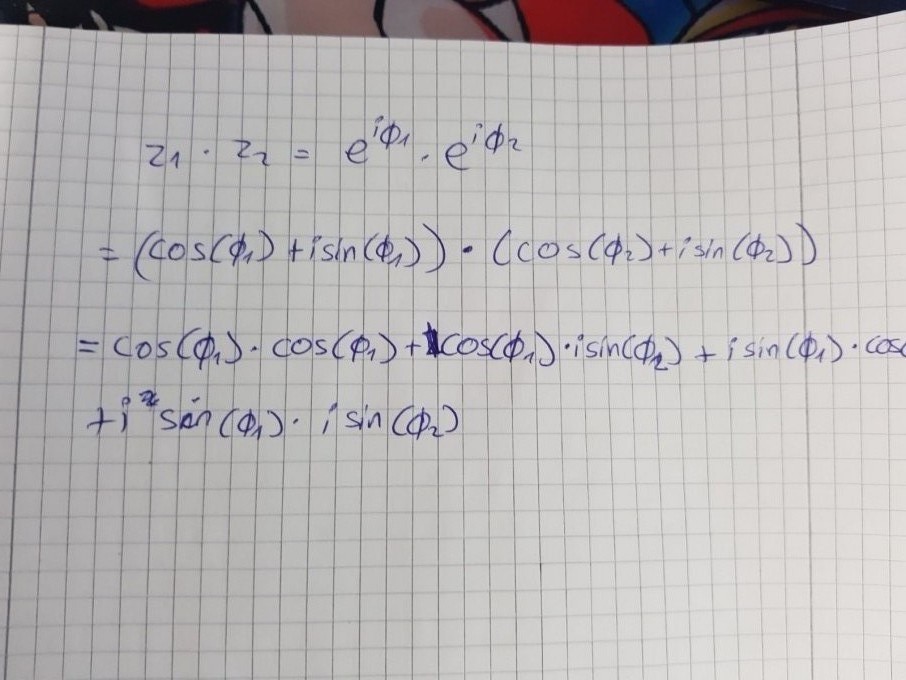 z₁ · z₂ = e^{iϕ₁} · e^{iϕ₂}
= (cos(ϕ₁) + i sin(ϕ₁)) · (cos(ϕ₂) + i sin(ϕ₂))
= cos(ϕ₁) · cos(ϕ₁) + cos(ϕ₁) · i sin(ϕ₂) + i sin(ϕ₁) · cos
+ i sin(ϕ₁) · i sin(ϕ₂)